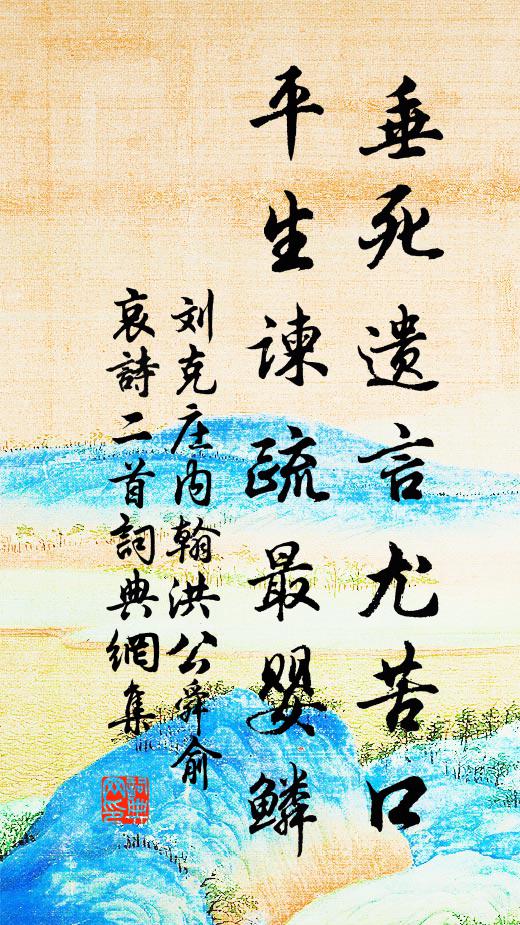 垂死遗言尤苦口
平生谏疏最婴鳞
刘克庄内翰洪公舜俞
哀詩二首詞典網集